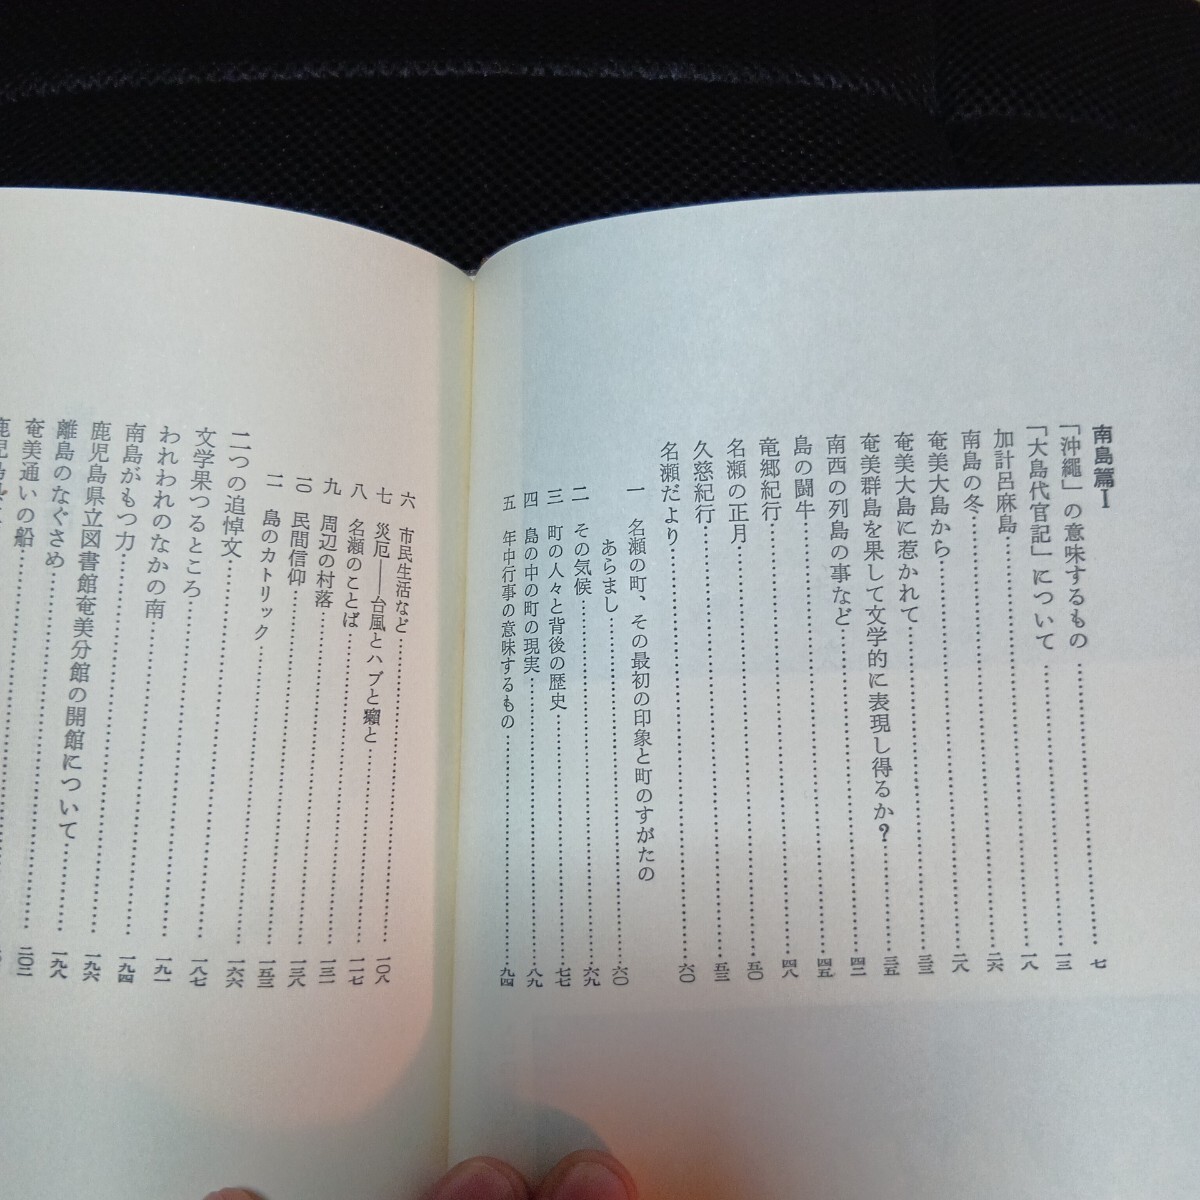 南島篇Ⅰ
「沖繩」の意味するもの……七
「大島代官記」について……一三
加計呂麻島……一八
南島の冬……二六
奄美大島から……二八
奄美大島に惹かれて……三三
奄美群島を果して文学的に表現し得るか？……三五
南西の列島の事など……四二
島の闘牛……四五
竜郷紀行……四八
名瀬の正月……五〇
久慈紀行……五三
名瀬だより……六〇
一 名瀬の町、その最初の印象と町のすがたの
あらまし……六〇
二 その気候……六九
三 町の人々と背後の歴史……七七
四 島の中の町の現実……八九
五 年中行事の意味するもの……九四
六 市民生活など……一〇八
七 災厄――台風とハブと癩と……一一七
八 名瀬のことば……一三一
九 周辺の村落……一三八
一〇 民間信仰……一五三
一一 島のカトリック……一六六
二つの追悼文……一八七
文学果つるところ……一九一
われわれのなかの南……一九四
南島がもつ力……一九六
鹿児島県立図書館奄美分館の開館について……一九八
離島のなぐさめ……二〇二
奄美通いの船……